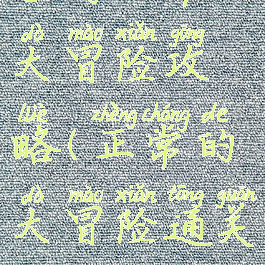 dà mào xiǎn gōng
大冒险攻
lüè zhèng cháng de
略(正常的
dà mào xiǎn tōng guān
大冒险通关